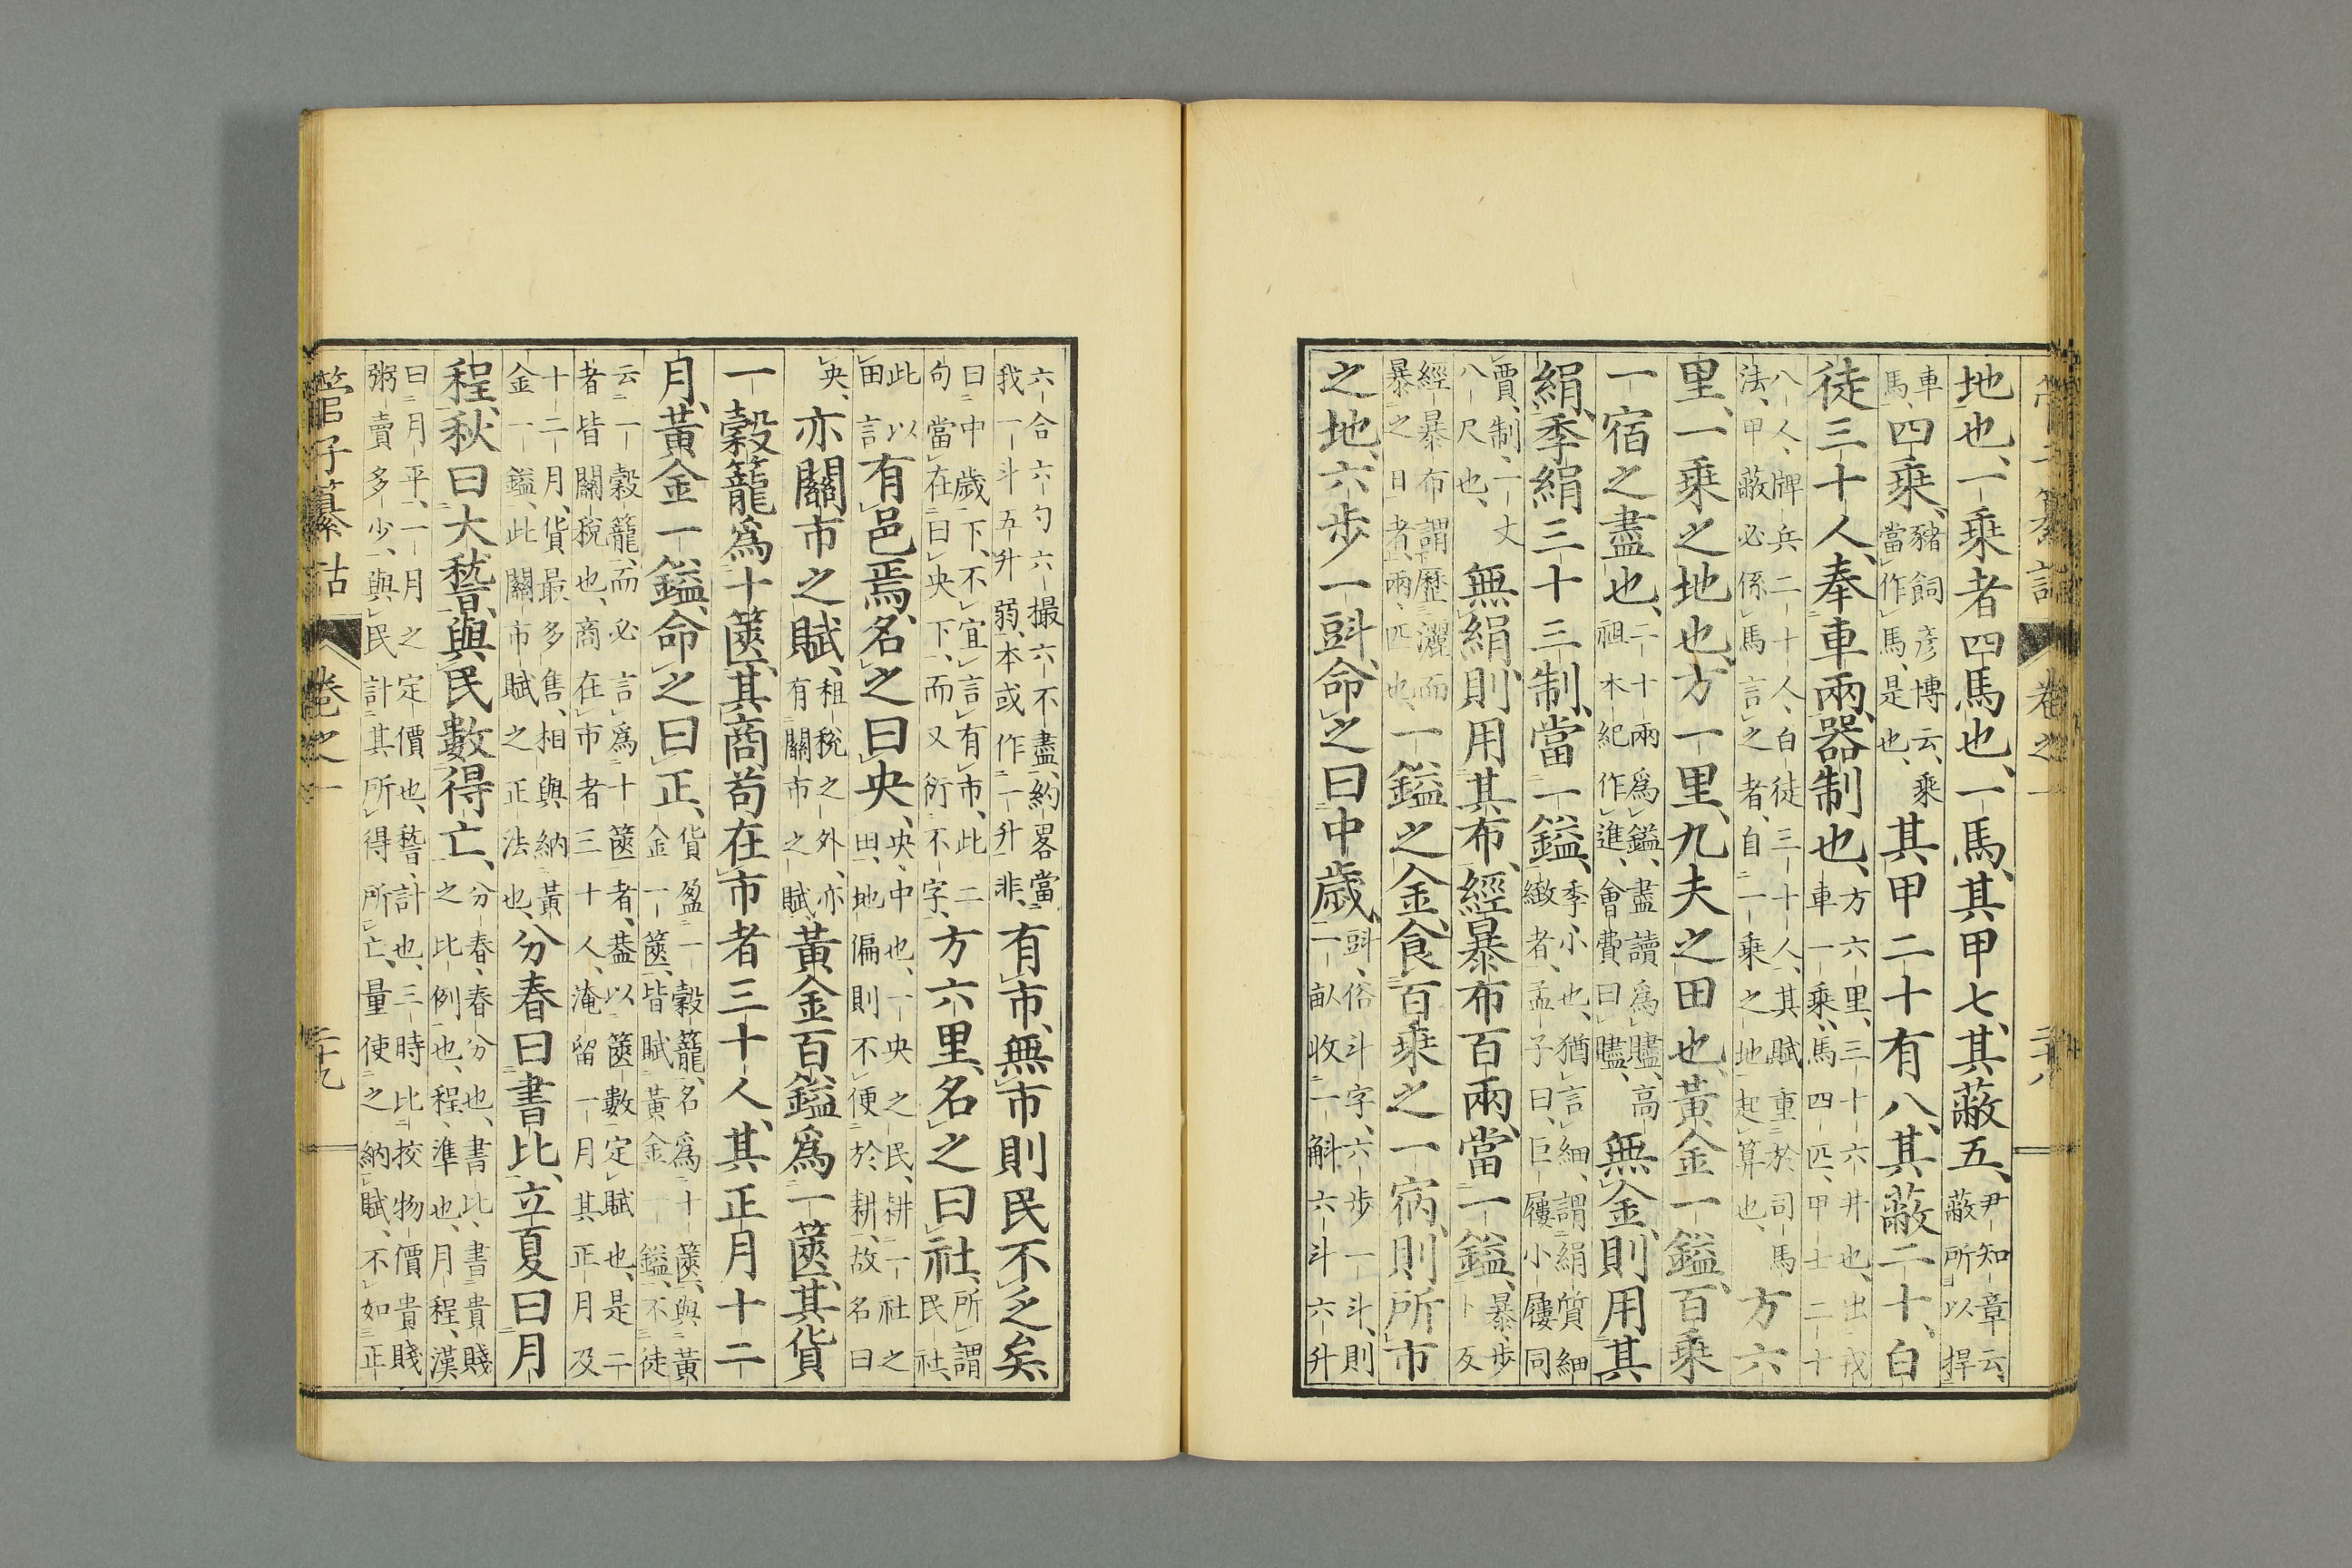 管子纂詁 卷之一 二十八
地也、一乘者四馬也、一馬、其甲七、其蔽五、尹知章云、蔽所以捍
車馬、四乘、豬飼彥博云、乘當作馬、是也、其甲二十有八、其蔽二十、白
徒三十人、奉車兩、器制也、方六里、三十六井也、出戎車一乘、馬四匹、甲士二十
八人、牌兵二十人、白徒三十人、其賦重於司馬法、甲蔽必係馬言之者、自一乘之地起算也、方六
里、一乘之地也、方一里、九夫之田也、黃金一鎰、百乘
一宿之盡也、二十兩爲鎰、盡讀爲贐、高祖本紀作進、會費曰贐、無金、則用其
絹、季絹三十三制、當一鎰、季、小也、猶言細、謂絹質細緻者、孟子曰、巨屨小屨同
賈、制、一丈八尺也、無絹、則用其布、經暴布百兩、當一鎰、暴、步卜反
經暴布謂歷濯而暴之日者、兩、匹也、一鎰之金、食百乘之一宿、則所市
之地、六步一㪷、命之曰中歲、㪷、俗斗字、六步一斗、則一畝收一斛六斗六升
六合六勺六撮六不盡、約畧當我一斗五升弱、本或作二升、非、有市、無市則民不乏矣、
曰中歲下、不宜言有市、此二句當在曰央下、而又衍不字、方六里、名之曰社、所謂民社、
此以田言有邑焉、名之曰央、央、中也、一央之民、耕一社之田、地偏則不便於耕、故名曰
央、亦關市之賦、租稅之外、亦有關市之賦、黃金百鎰爲一篋、其貨
一穀籠爲十篋、其商苟在市者三十人、其正月十二
月、黃金一鎰、命之曰正、貨盈一穀籠、名爲十篋、與黃金一篋、皆賦黃金一鎰、不徒
云一穀籠、而必言爲十篋者、蓋以篋數定賦也、是二者皆關稅也、商在市者三十人、淹留一月其正月及
十二月、貨最多售、相與納黃金一鎰、此關市賦之正法也、分春曰書比、立夏曰月
程、秋曰大稽、與民數得亡、分春、春分也、書比、書貴賤之比例也、程、準也、月程、漢
曰月平、一月之定價也、稽、計也、三時比挍物價貴賤粥賣多少、與民計其所得所亡、量使之納賦、不如正
管子纂詁 卷之一 二十九